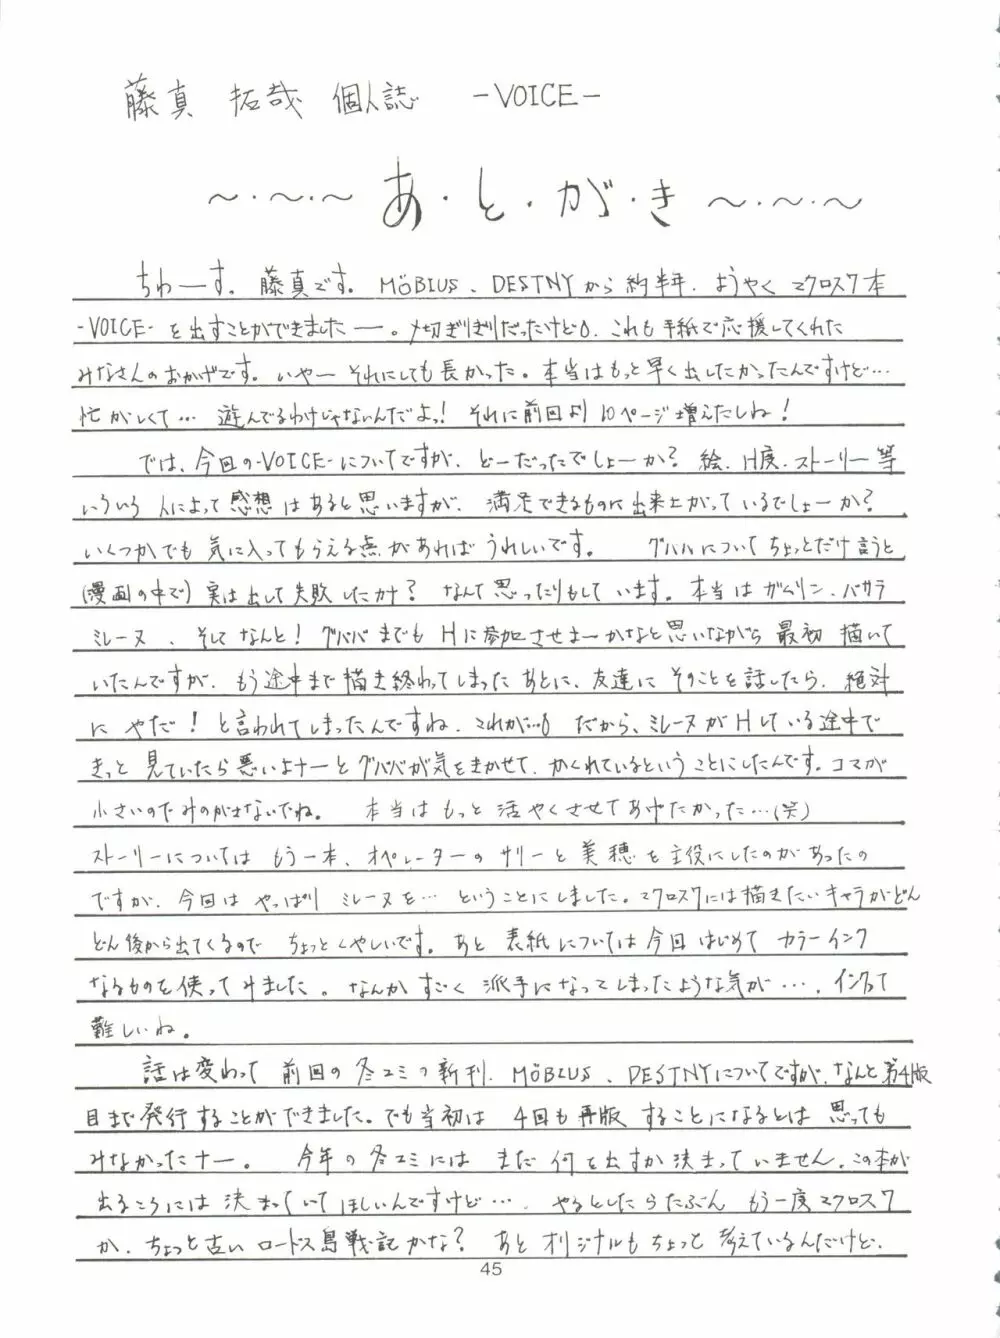 藤真 拓哉 個人誌 -VOICE-
〜・〜・〜 あ・と・が・き 〜・〜・〜
ちわーす。藤真です。MÖBIUS、DESTNYから約半年、ようやくマクロス7本
-VOICE- を出すことができましたー。〆切ぎりぎりだったけど。これも手紙で応援してくれた
みなさんのおかげです。いやー それにしても長かった。本当はもっと早く出したかったんですけど…
忙がしくて… 遊んでるわけじゃないんだよっ! それに前回より10ページ増えたしね!
では、今回の-VOICE-についてですが、どーだったでしょーか? 絵、H度、ストーリー等
いろいろ人によって感想はあると思いますが、満足できるものに出来上がっているでしょーか?
いくつかでも気に入ってもらえる点があればうれしいです。 グババについてちょっとだけ言うと
(漫画の中で) 実は出して失敗したか? なんて思ったりもしています。本当はガムリン、バサラ
ミレーヌ、そしてなんと! グババまでもHに参加させよーかなと思いながら最初描いて
いたんですが、もう途中まで描き終わってしまったあとに、友達にそのことを話したら、絶対
にやだ! と言われてしまったんですね、これが…。 だから、ミレーヌがHしている途中で
きっと見ていたら悪いよナーとグババが気をきかせて、かくれているということにしたんです。コマが
小さいのでみのがさないでね。 本当はもっと活やくさせてあげたかった…(笑)
ストーリーについてはもう一本、オペレーターのサリーと美穂を主役にしたのがあったの
ですが、今回はやっぱりミレーヌを… ということにしました。マクロス7には描きたいキャラがどん
どん後から出てくるのでちょっとくやしいです。あと表紙については今回はじめてカラーインク
なるものを使ってみました。なんかすごく派手になってしまったような気が…。インクって
難しいね。
話は変わって前回の冬コミの新刊、MÖBIUS、DESTNYについてですが、なんと第4版
目まで発行することができました。でも当初は4回も再版することになるとは思っても
みなかったナー。 今年の冬コミにはまだ何を出すか決まっていません。この本が
出るころには決まっていてほしいんですけど…。やるとしたらたぶんもう一度マクロス7
か、ちょっと古いロードス島戦記かな? あとオリジナルもちょっと考えているんだけど、
45